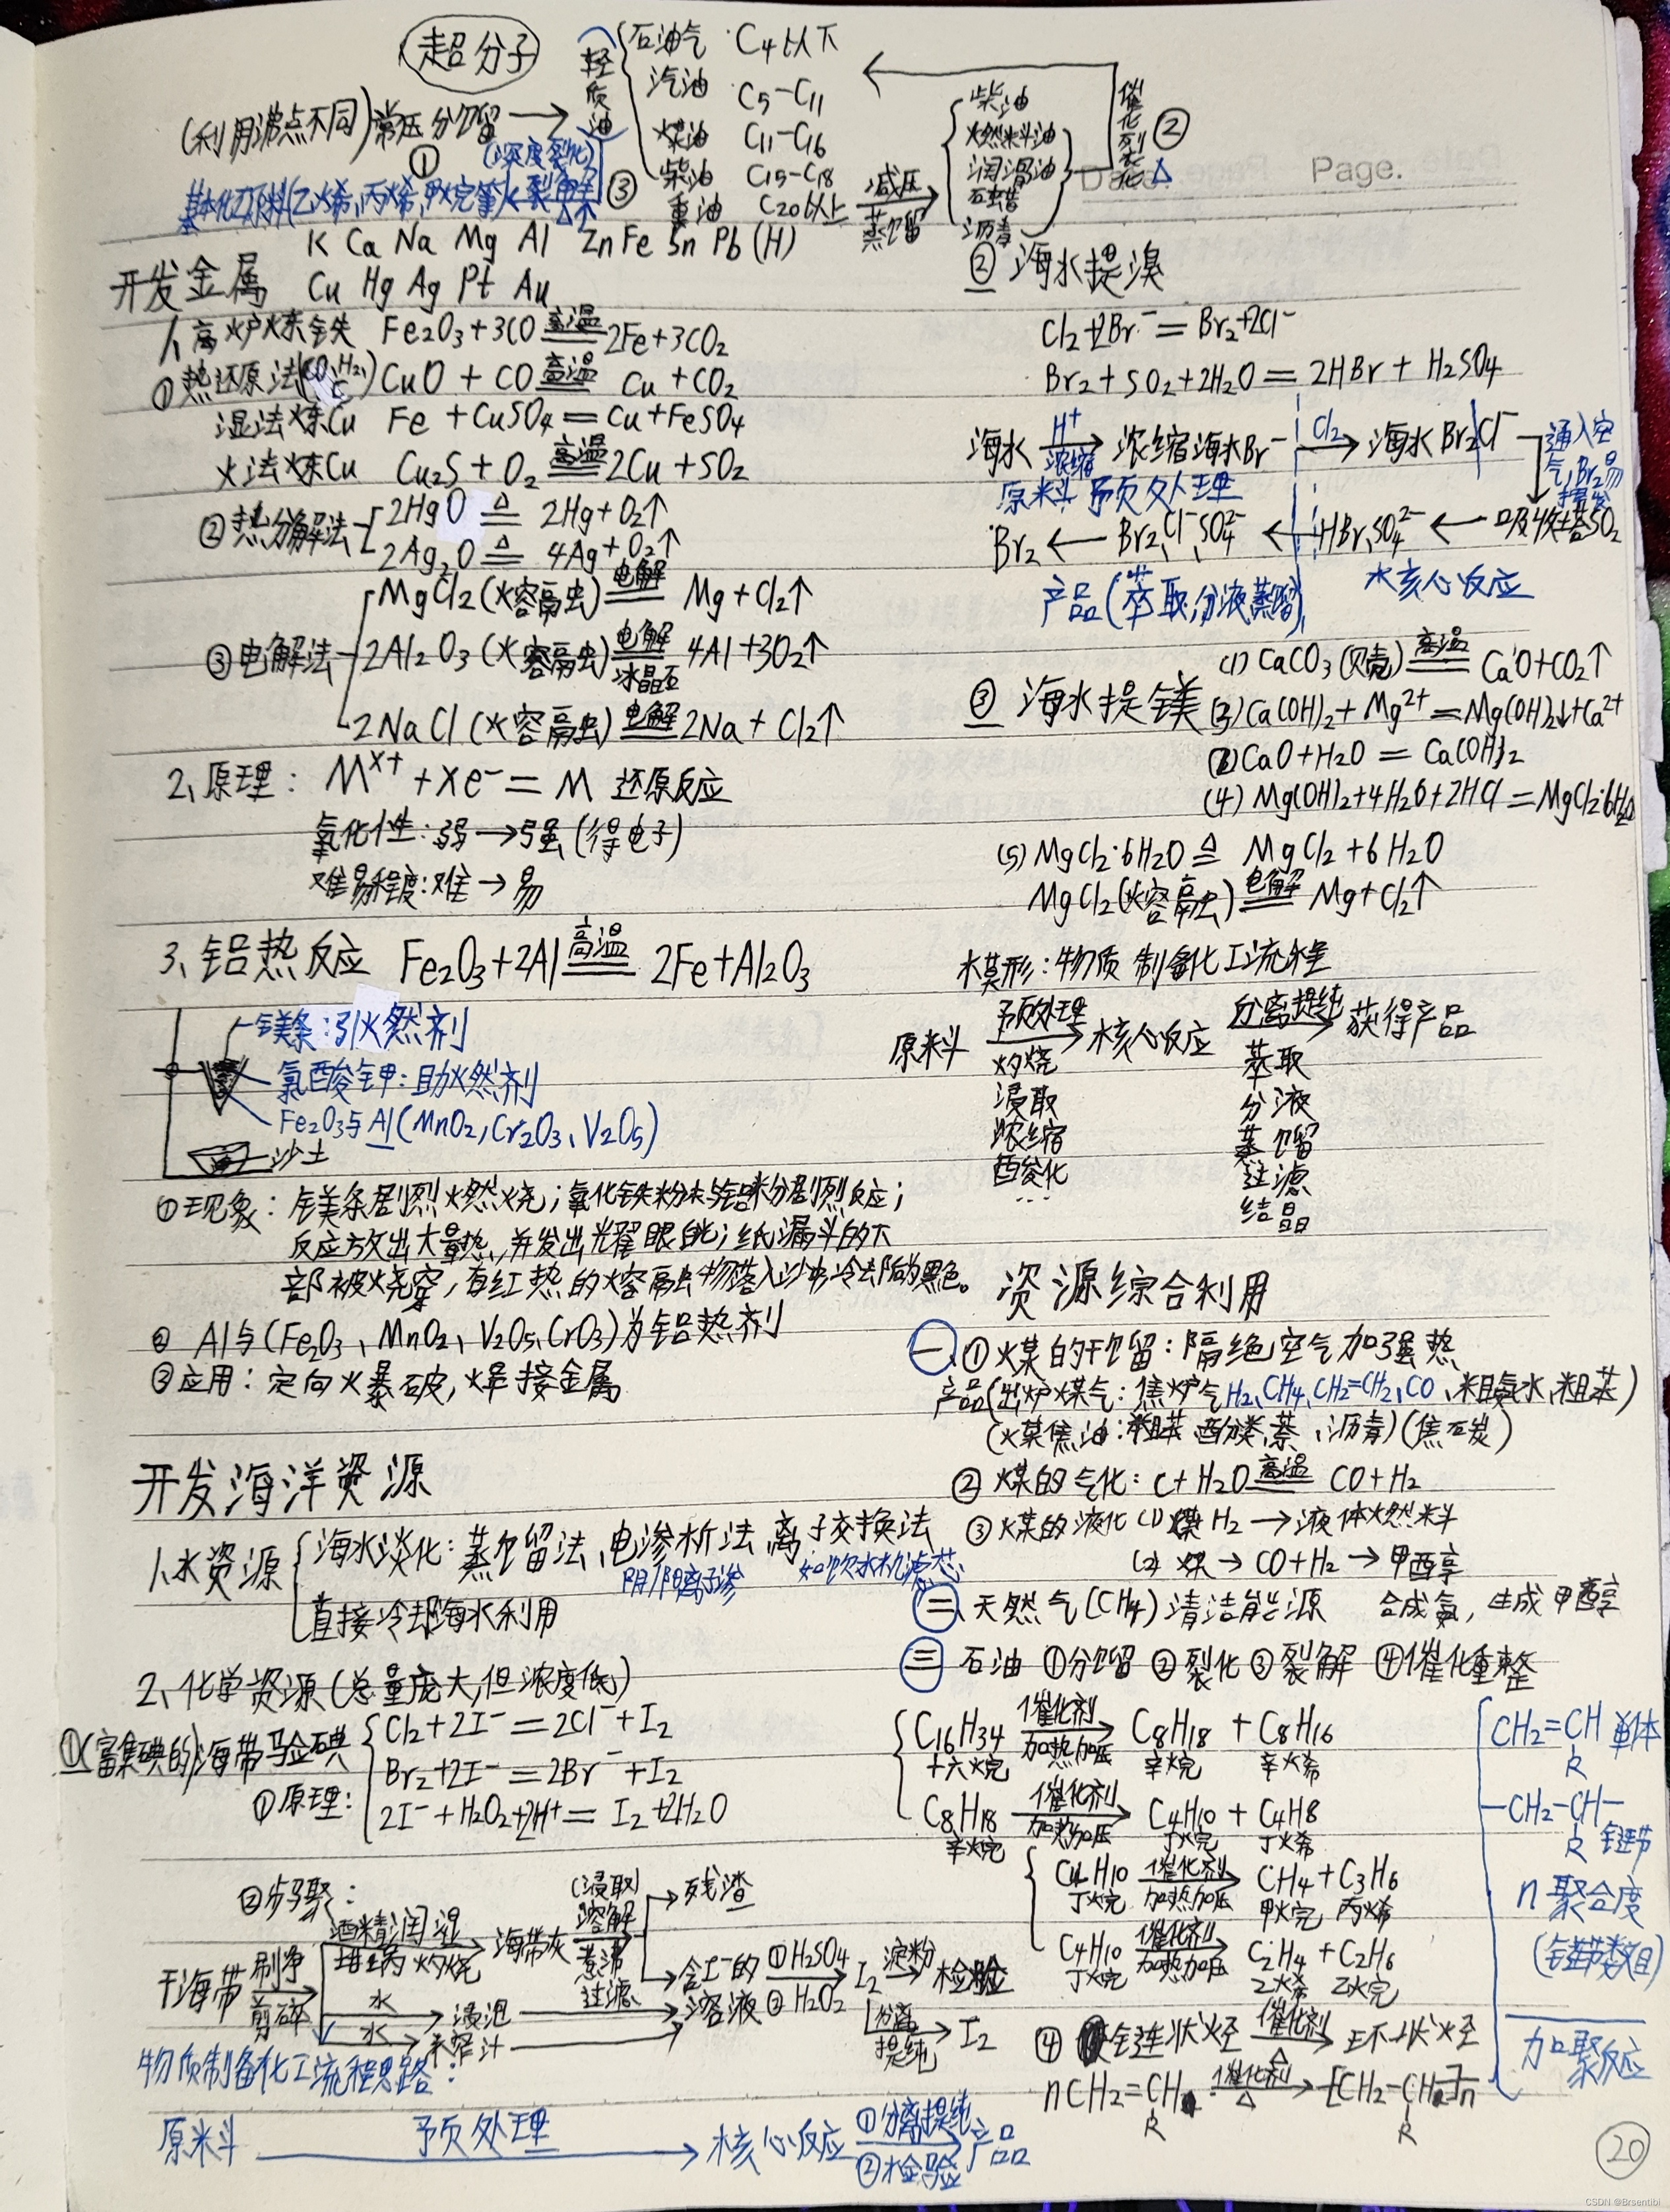 超分子
(利用沸点不同)常压分馏 →
①
轻质油
石油气 C4以下
汽油 C5-C11
煤油 C11-C16
柴油 C15-C18
重油 C20以上
减压
蒸馏
柴油
燃料油
润滑油
石蜡
沥青
催化裂化
△
②
(深度裂化)
③
基本化工原料(乙烯,丙烯,甲烷等)← 裂解
Page.
开发金属
K Ca Na Mg Al Zn Fe Sn Pb (H)
Cu Hg Ag Pt Au
1、高炉炼铁 Fe2O3+3CO 高温 2Fe+3CO2
①热还原法(CO,H2,C) CuO + CO 高温 Cu+CO2
湿法炼Cu Fe +CuSO4 = Cu+FeSO4
火法炼Cu Cu2S+O2 高温 2Cu+SO2
②热分解法
2HgO △ 2Hg+O2↑
2Ag2O △ 4Ag+O2↑
③电解法
MgCl2(熔融) 电解 Mg+Cl2↑
2Al2O3(熔融) 电解 冰晶石 4Al+3O2↑
2NaCl(熔融) 电解 2Na+Cl2↑
2、原理: Mx+ +xe- = M 还原反应
氧化性:弱→强(得电子)
难易程度:难→易
3、铝热反应 Fe2O3+2Al 高温 2Fe+Al2O3
镁条:引燃剂
氯酸钾:助燃剂
Fe2O3与Al(MnO2,Cr2O3、V2O5)
沙土
①现象:镁条剧烈燃烧;氧化铁粉末与铝粉剧烈反应;
反应放出大量热,并发出光耀眼白;纸漏斗的下
部被烧穿,有红热的熔融物落入沙中冷却后为黑色。
② Al与(Fe2O3、MnO2、V2O5、CrO3)为铝热剂
③应用:定向爆破,焊接金属
开发海洋资源
1、水资源
海水淡化:蒸馏法、电渗析法、离子交换法
阴/阳离子渗
如饮水机滤芯
直接冷却海水利用
2、化学资源(总量庞大,但浓度低)
①(富集碘的)海带验碘
①原理:
Cl2+2I-=2Cl-+I2
Br2+2I-=2Br-+I2
2I-+H2O2+2H+=I2+2H2O
②步骤:
干海带 刷净 剪碎
酒精润湿
坩埚 灼烧
海带灰
(浸取)
溶解
煮沸
过滤
→残渣
→含I-的溶液 ①H2SO4 ②H2O2 I2 淀粉 检验
分离
提纯 → I2
水 → 浸泡
水 → 榨汁
物质制备化工流程思路:
原料 预处理 → 核心反应 ①分离提纯 ②检验 产品
② 海水提溴
Cl2+2Br-=Br2+2Cl-
Br2+SO2+2H2O=2HBr+H2SO4
海水 H+ 浓缩 → 浓缩海水Br- Cl2 → 海水Br2Cl-
通入空气,Br2易挥发
原料预处理
Br2 ← Br2、Cl-、SO42- ← HBr、SO42- ← 吸收塔SO2
产品(萃取,分液蒸馏)
核心反应
③ 海水提镁
(1)CaCO3(贝壳) 高温 CaO+CO2↑
(3)Ca(OH)2+Mg2+=Mg(OH)2↓+Ca2+
(2)CaO+H2O=Ca(OH)2
(4)Mg(OH)2+4H2O+2HCl=MgCl2·6H2O
(5)MgCl2·6H2O △ MgCl2+6H2O
MgCl2(熔融) 电解 Mg+Cl2↑
模形:物质制备化工流程
原料 预处理 → 核心反应 分离提纯 → 获得产品
灼烧
浸取
浓缩
酸化
...
萃取
分液
蒸馏
过滤
结晶
资源综合利用
一、①煤的干馏:隔绝空气加强热
产品(出炉煤气:焦炉气H2、CH4、CH2=CH2、CO、粗氨水、粗苯)
(煤焦油:粗苯、酚类、萘、沥青)(焦炭)
②煤的气化:C+H2O 高温 CO+H2
③煤的液化(1)煤 H2→液体燃料
(2) 煤→CO+H2→甲醇
二、天然气(CH4)清洁能源 合成氨,生成甲醇
三 石油 ①分馏 ②裂化 ③裂解 ④催化重整
C16H34 催化剂 加热加压 C8H18 + C8H16
十六烷 辛烷 辛烯
C8H18 催化剂 加热加压 C4H10 + C4H8
辛烷 丁烷 丁烯
C4H10 催化剂 加热加压 CH4+C3H6
丁烷 甲烷 丙烯
C4H10 催化剂 加热加压 C2H4+C2H6
丁烷 乙烯 乙烷
④ 链状烃 催化剂 △ 环状烃
nCH2=CH 催化剂 △ → [CH2-CH]n
R R
CH2=CH 单体
R
-CH2-CH-
R 链节
n 聚合度
(链节数目)
加聚反应
20
CSDN @Brsentibi